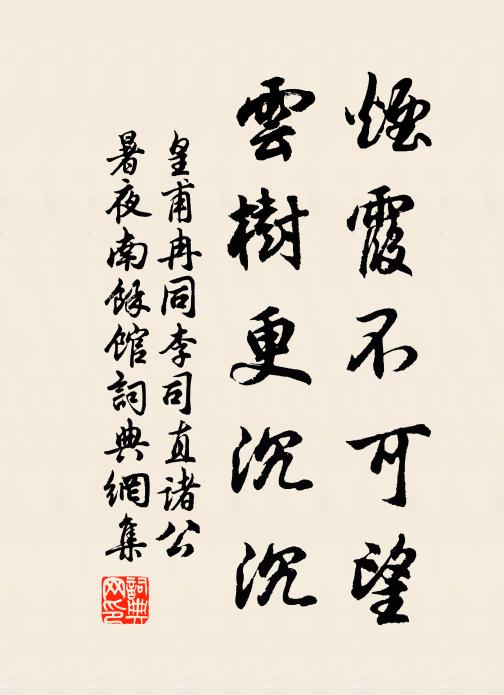 煙霞不可望
雲樹更沉沉
皇甫冉同李司直諸公
暑夜南餘館詞典網集
詞典网印